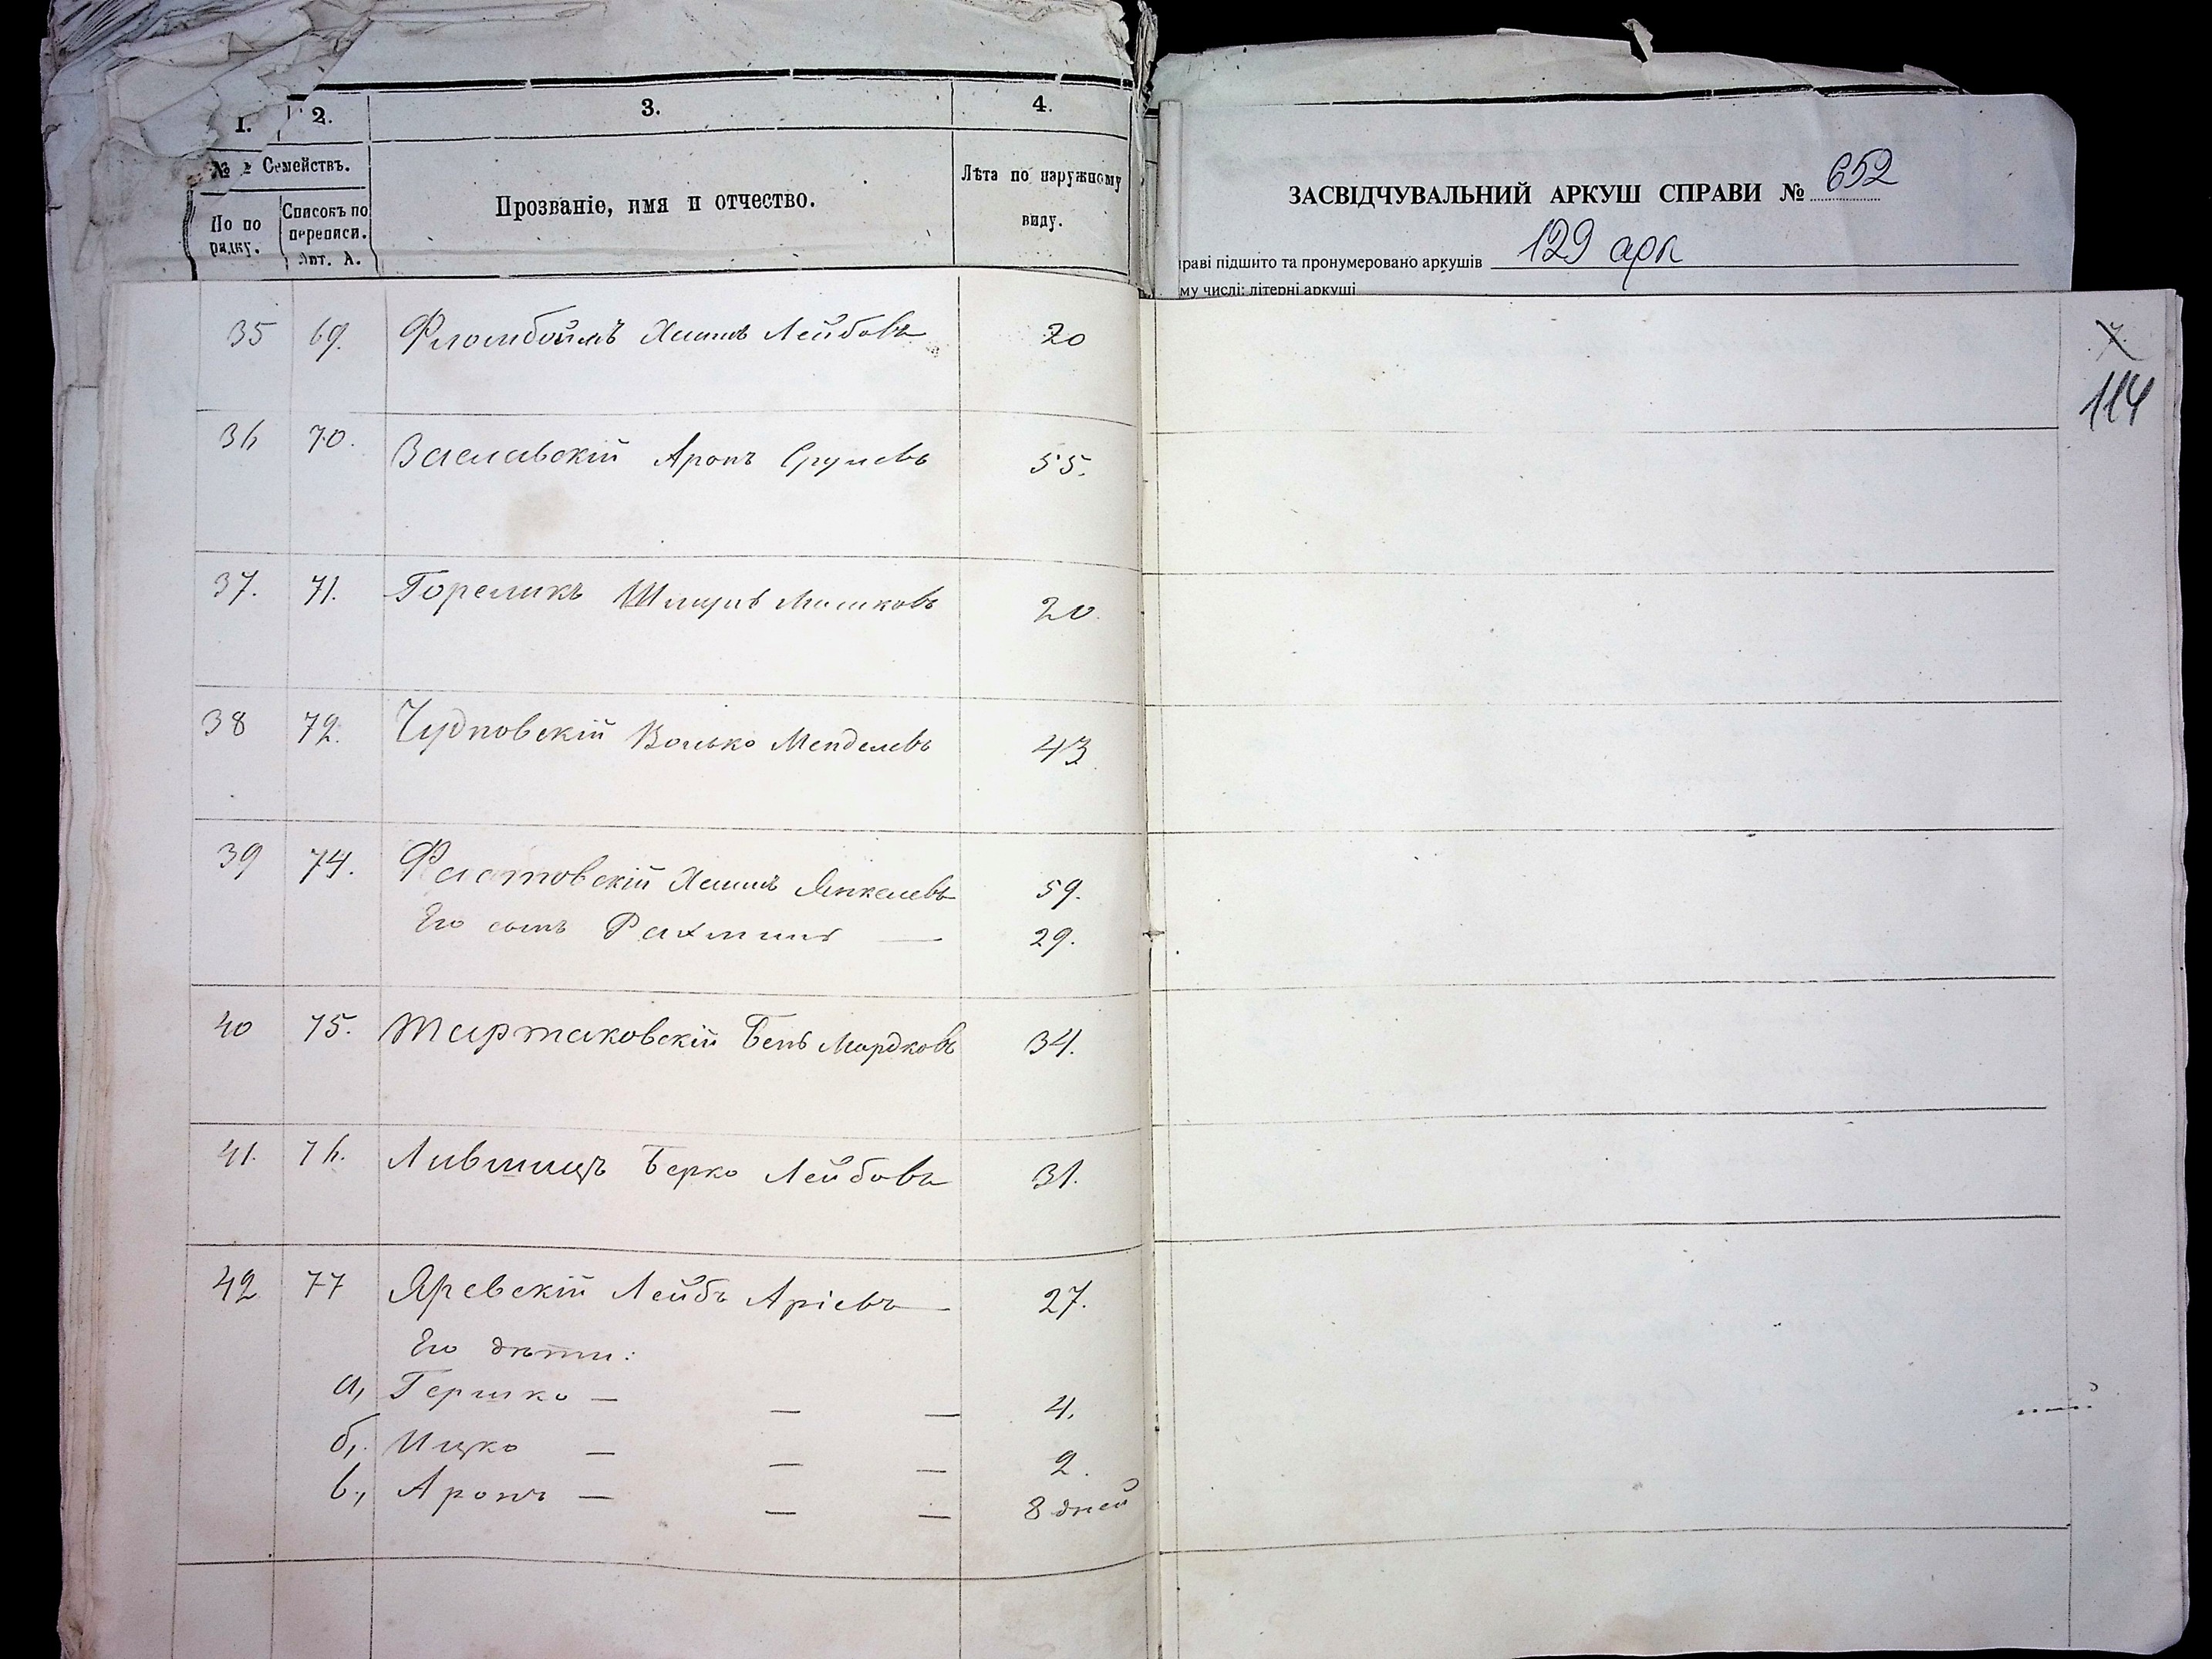 1. 2. 3. 4.
№ Семействъ.
По по рядку.
Списокъ по переписи. Лит. А.
Прозваніе, имя и отчество.
Лѣта по наружному виду.
ЗАСВІДЧУВАЛЬНИЙ АРКУШ СПРАВИ № 652
раві підшито та пронумеровано аркушів 129 арк
му числі: літерні аркуші
7.
114
35 69. Хаимъ Лейбовъ 20
36 70. Заславскій Аронъ Сруневъ 55.
37. 71. Гореликъ Шмуль Мошковъ 20.
38 72. Чудновскій Волько Менделевъ 43
39 74. Фастовскій Хаимъ Янкелевъ 59.
Его сынъ Рахмиль — 29.
40 75. Тартаковскій Бень Мордковъ 34.
41. 76. Лившицъ Берко Лейбовъ 31.
42 77 Яревскій Лейбъ Аріевъ 27.
Его дѣти:
а, Гершко — — — 4.
б, Ицко — — — 2.
в, Аронъ — — — 8 дней